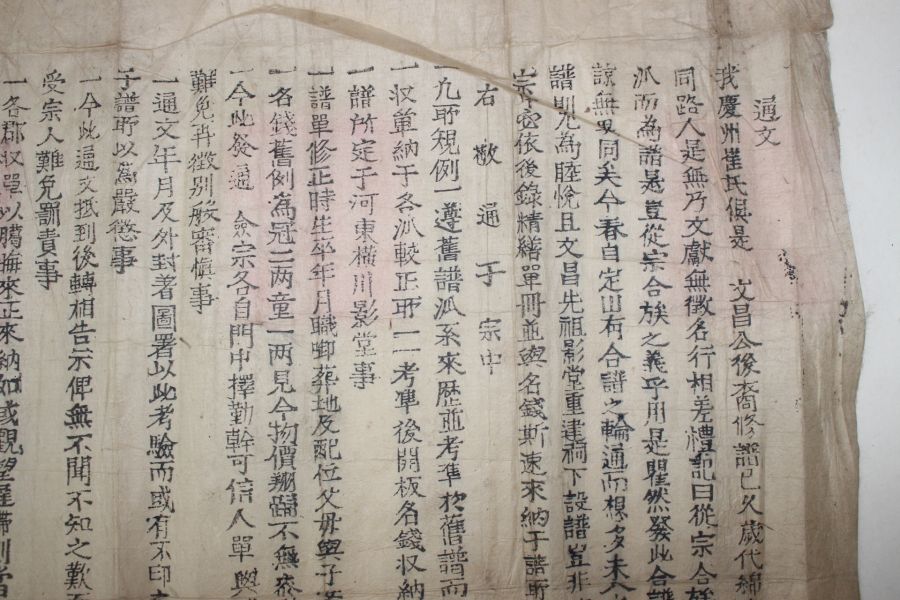 通文
我慶州崔氏俱是 文昌公後裔修譜已久歲代綿
同路人是無乃文獻無徵名行相差禮記曰從宗合族
派而為譜是豈從宗合族之義乎用是瞿然發此合譜
諒無異同矣今春自定山有合譜之輪通而想多未
譜則尤為睦悅且文昌先祖影堂重建祠下設譜豈非
宗僉依後錄精繕單冊並與名錢斯速來納于譜所
右敬通于宗中
一凡所規例一遵舊譜派系來歷並考準於舊譜而
一收單納于各派較正所一一考準後開板名錢收納
一譜所定于河東橫川影堂事
一譜單修正時生卒年月職啣葬地及配位父毋與子
一名錢舊例為冠二両童一両見今物價翔踊不無
一今此發通 僉宗各自門中擇勤幹可信人單與
難免再徵別般審慎事
一通文年月及外封著圖署以此考驗而或有不印
于譜所以為嚴懲事
一今此通文抵到後轉相告示俾無不聞不知之歎
受宗人難免罰責事
一各郡收單以臘晦來正來納如或觀望遲滯則